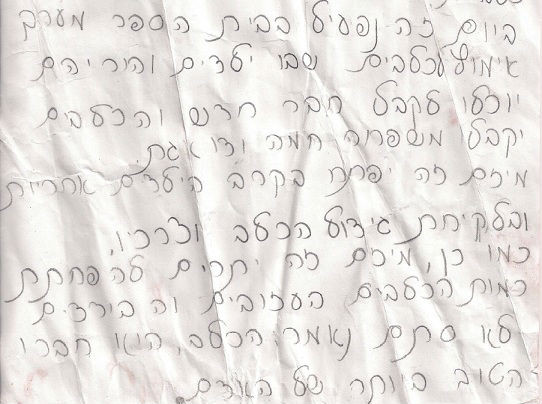 ביום זה נפעיל בבית הספר מערך
אימוץ לכלבים שבו ילדים והוריהם
יוכלו לקבל חבר חדש והכלבים
יקבלו משפחה חמה ודואגת.
מיזם זה יפתח בקרב הילדים אחריות
ובלקיחת גידול הכלב וצרכיו,
כמו כן, מיזם זה יתרום להפחתת
כמות הכלבים העזובים והבודדים
לא סתם נאמר הכלב הוא חברו
הטוב ביותר של האדם